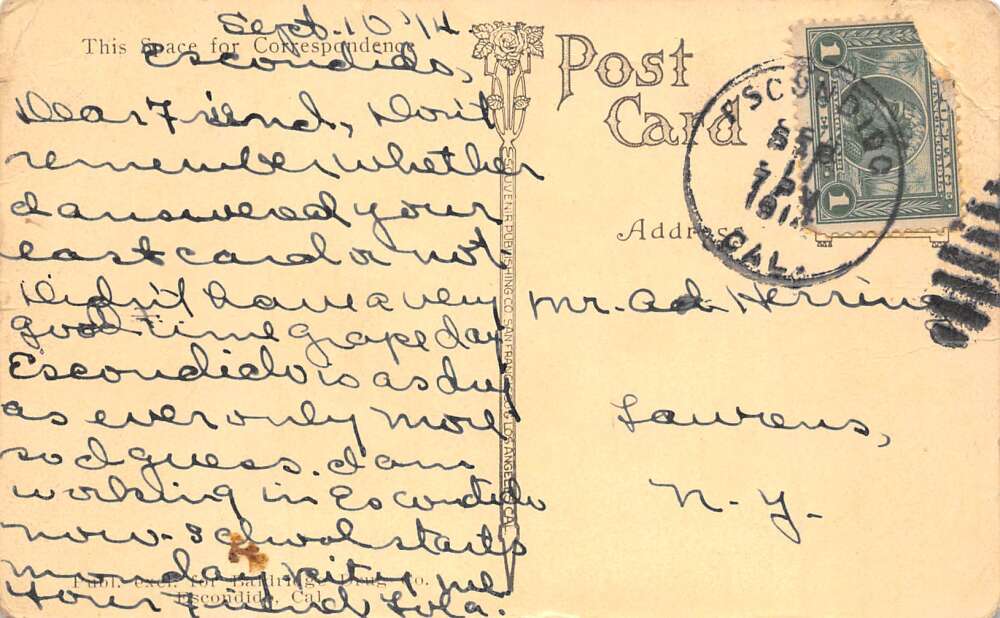 Sept. 10 '14.
This Space for Correspondence
Escondido,
Dear Friend, Don't
remember whether
I answered your
last card or not
Didn't have a very
good time grape day
Escondido is as dry
as ever only more
so I guess. I am
working in Escondido
now - School starts
monday pity me
Your Friend Lola.
Publ. excl. for Baldridge Drug Co.
Escondido, Cal.
SOUVENIR PUBLISHING CO. SAN FRANCISCO LOS ANGELES, CAL.
Post
Card
Address
ESCONDIDO
SEP
7 PM
1914
CAL.
1 1
Mr. Ad Herring
Laurens,
N. Y.